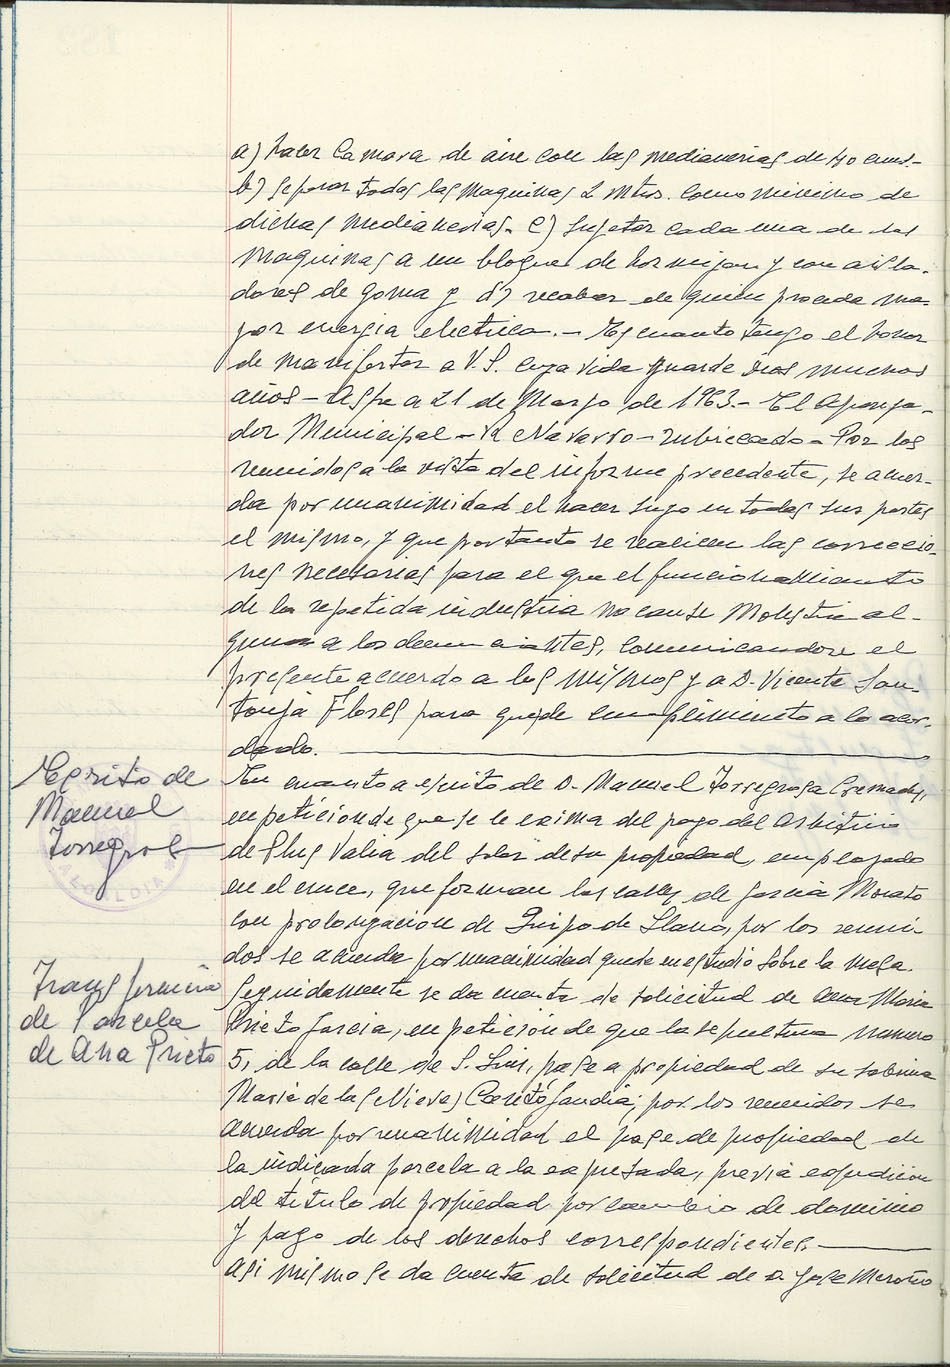 a) hacer Camara de aire con las medianerias de 40 cms.-
b) separar todas las maquinas 2 Mtrs. como minimo de
dichas medianerias. c) Sujetar cada una de las
maquinas a un bloque de hormigon y con aisla-
dores de goma y d) recabar de quien proceda ma-
yor energia electrica.- Es cuanto tengo el honor
de manifestar a V.S. cuya vida guarde Dios muchos
años - Aspe a 21 de Marzo de 1963.- El Apareja-
dor Municipal - Navarro - rubricado - Por los
reunidos a la vista del informe precedente, se acuer-
da por unanimidad el hacer suyo en todas sus partes
el mismo, y que por tanto se realicen las correccio-
nes necesarias para el que el funcionamiento
de la repetida industria no cause Molestia al-
guna a los denunciantes, comunicandose el
presente acuerdo a los mismos y a D. Vicente San-
tonja Flores para que de cumplimiento a lo acor-
dado.
Escrito de
Manuel
Torregrosa
En cuanto a escrito de D. Manuel Torregrosa Cremades,
en peticion de que se le exima del pago del Arbitrio
de Plus Valia del solar de su propiedad, emplazado
en el cruce, que forman las calles de Garcia Morato
con prolongacion de Queipo de Llano, por los reuni-
dos se acuerda por unanimidad quede en estudio sobre la mesa.
Transferencia
de Parcela
de Ana Prieto
Seguidamente se da cuenta de solicitud de Ana Maria
Prieto Garcia, en petición de que la sepultura numero
5, de la calle de S. Luis, pase a propiedad de su sobrina
Maria de las Nieves Gandia; por los reunidos se
acuerda por unanimidad el pase de propiedad de
la indicada parcela a la expresada, previa expedicion
del titulo de propiedad por cambio de dominio
y pago de los derechos correspondientes.
Asi mismo se da cuenta de solicitud de D. Jose